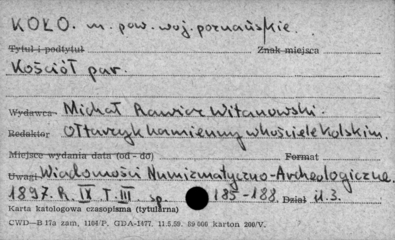 KOŁO. m. pow. woj. poznańskie.
Tytuł i podtytuł Znak miejsca
Kościół par.
Wydawca Michał Rawicz Witanowski.
Redaktor Ołtarzyk kamienny w kościele kolskim.
Miejsce wydania data (od - do) Format
Uwagi Wiadomości Numizmatyczno-Archeologiczne
1897. R. IX T. III sp. 185-188. Dział il. 3.
Karta katologowa czasopisma (tytularna)
CWD—B 17a zam. GDA-1477. 11.5.59. karton